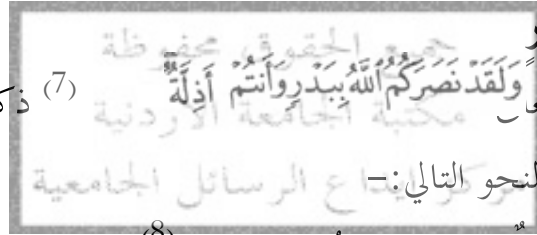 جميع الحقوق محفوظة
وَلَقَدْ نَصَرَكُمُ ٱللَّهُ بِبَدْرٍ وَأَنتُمْ أَذِلَّةٌ (7)
مكتبة الجامعة الاردنية
لنحو التالي:-
مركز ايداع الرسائل الجامعية
(8)